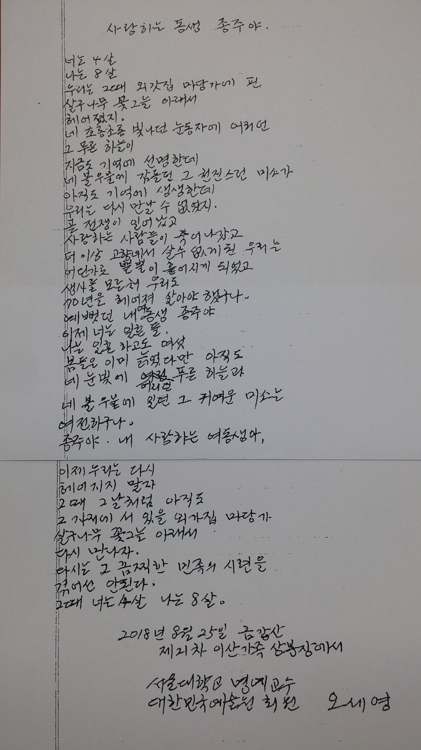 사랑하는 동생 종주야.
너는 4살
나는 8살
우리는 그때 외갓집 마당가에 핀
살구나무 꽃그늘 아래서
헤어졌지.
네 초롱초롱 빛나던 눈동자에 어리던
그 푸른 하늘이
지금도 기억에 선명한데
네 볼우물에 감돌던 그 천진스런 미소가
아직도 기억에 생생한데
우리는 다시 만날 수 없었지.
곧 전쟁이 일어났고
사랑하는 사람들이 죽어나갔고
더 이상 고향에서 살수 없게된 우리는
어딘가로 뿔뿔이 흩어지게 되었고
생사를 모른채 우리도
70년을 헤어져 살아야 했구나.
예뻤던 내 여동생 종주야
이제 너는 일흔 둘.
나는 일흔 하고도 여섯
봄들을 이미 잃었다만 아직도
네 눈빛에 어리던 푸른 하늘과
네 볼우물에 일던 그 귀여운 미소는
여전하구나.
종주야. 내 사랑하는 여동생아,
이제 우리는 다시
헤어지지 말자
그때 그날처럼 아직도
그 자리에 서 있을 외가집 마당가
살구나무 꽃그늘 아래서
다시 만나자.
다시는 그 끔찍한 민족의 시련을
겪어선 안된다.
그때 너는 4살 나는 8살.
2018년 8월 25일 금강산
제21차 이산가족 상봉장에서
서울대학교 명예교수
대한민국예술원 회원 오세영